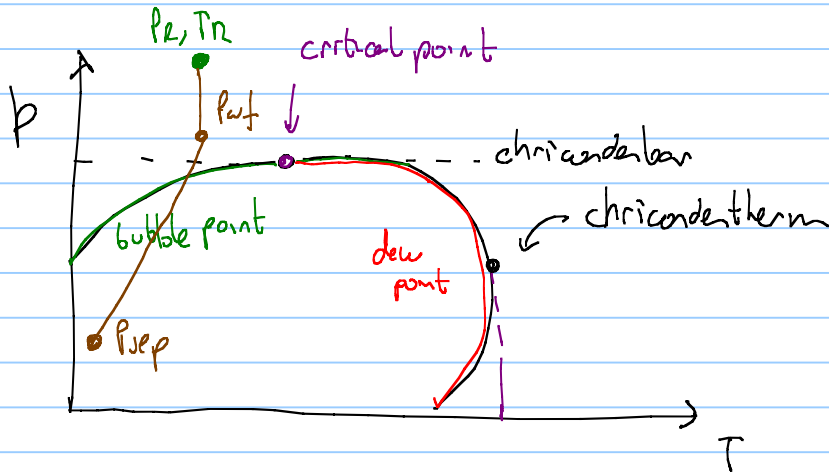 PR, TR
critical point
Pwf
p
chricondenbar
chricondentherm
bubble point
dew
point
Psep
T